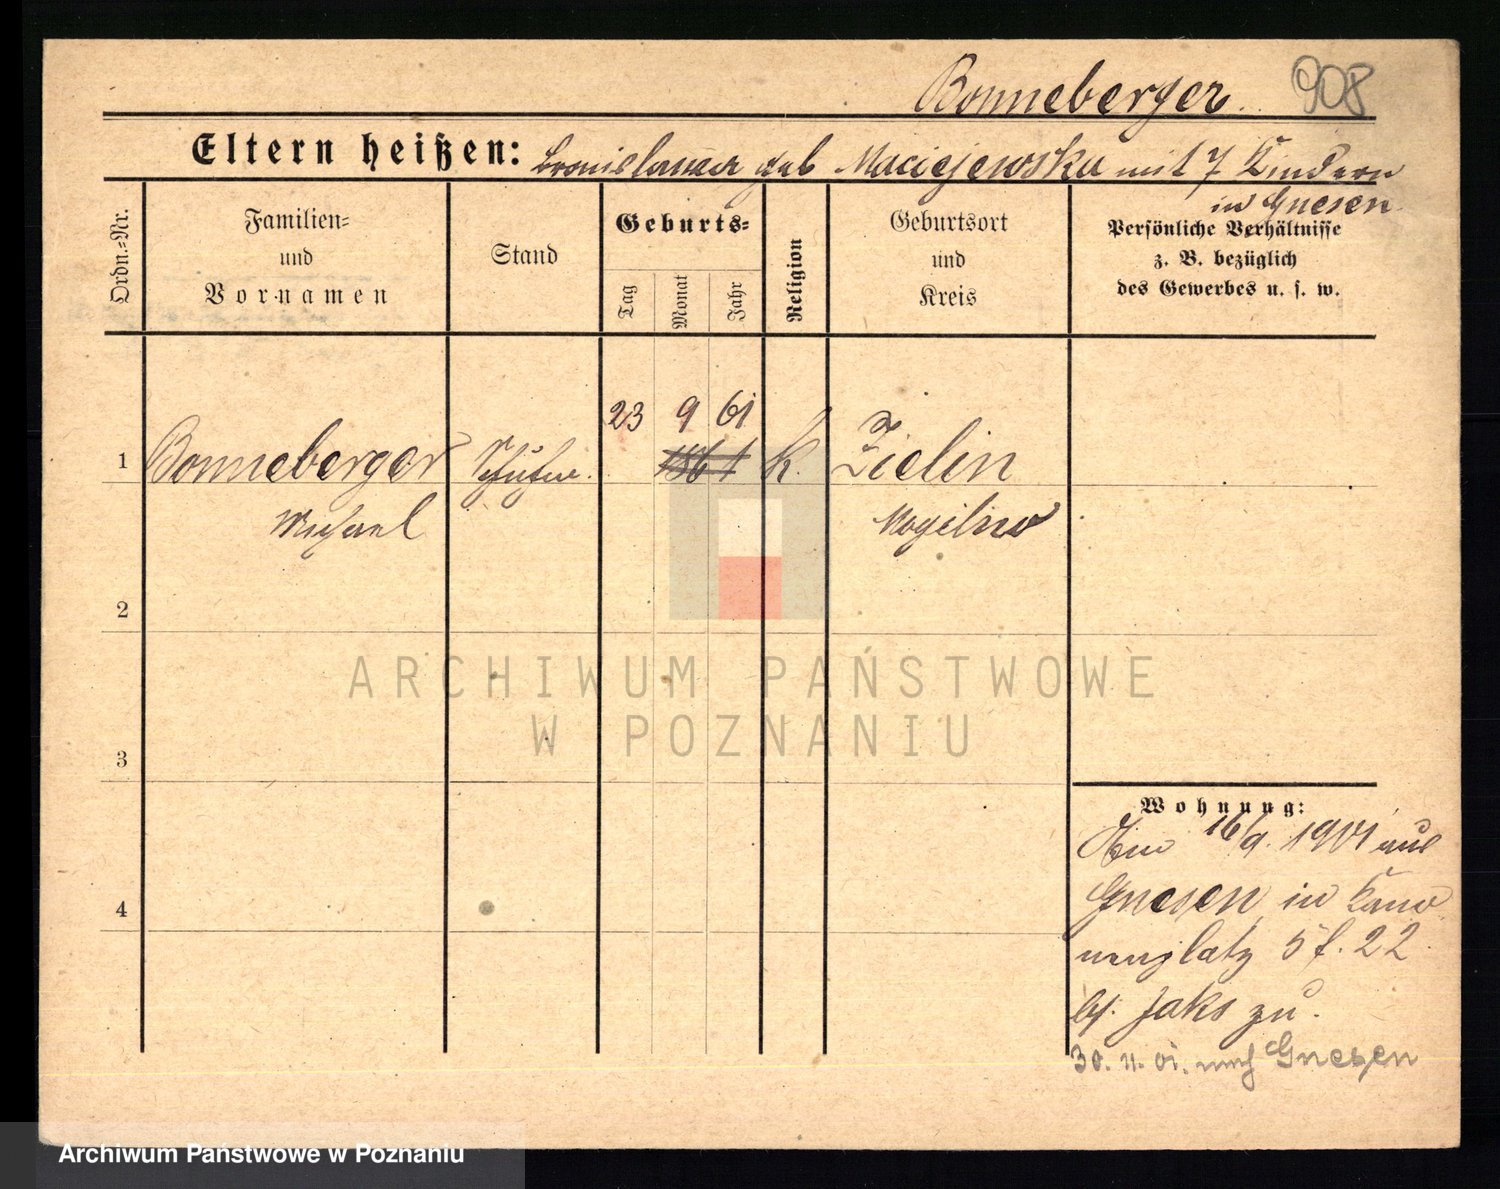 Bonneberger. 908
Eltern heißen: Bronislawa geb Maciejewska mit 7 Kindern
in Gnesen
Ordn.-Nr.
Familien-
und
Vornamen
Stand
Geburts-
Tag
Monat
Jahr
Religion
Geburtsort
und
Kreis
Persönliche Verhältnisse
z. B. bezüglich
des Gewerbes u. s. w.
23 9 61
1 Bonneberger 1861 k. Zielin
Michael Mogilno
2
3
4
ARCHIWUM PAŃSTWOWE
W POZNANIU
Wohnung:
16/9. 1901 aus
Gnesen in Kano
nenplatz 5 f. 22
bj. Jaks zu.
30. 11. 01. nach Gnesen
Archiwum Państwowe w Poznaniu